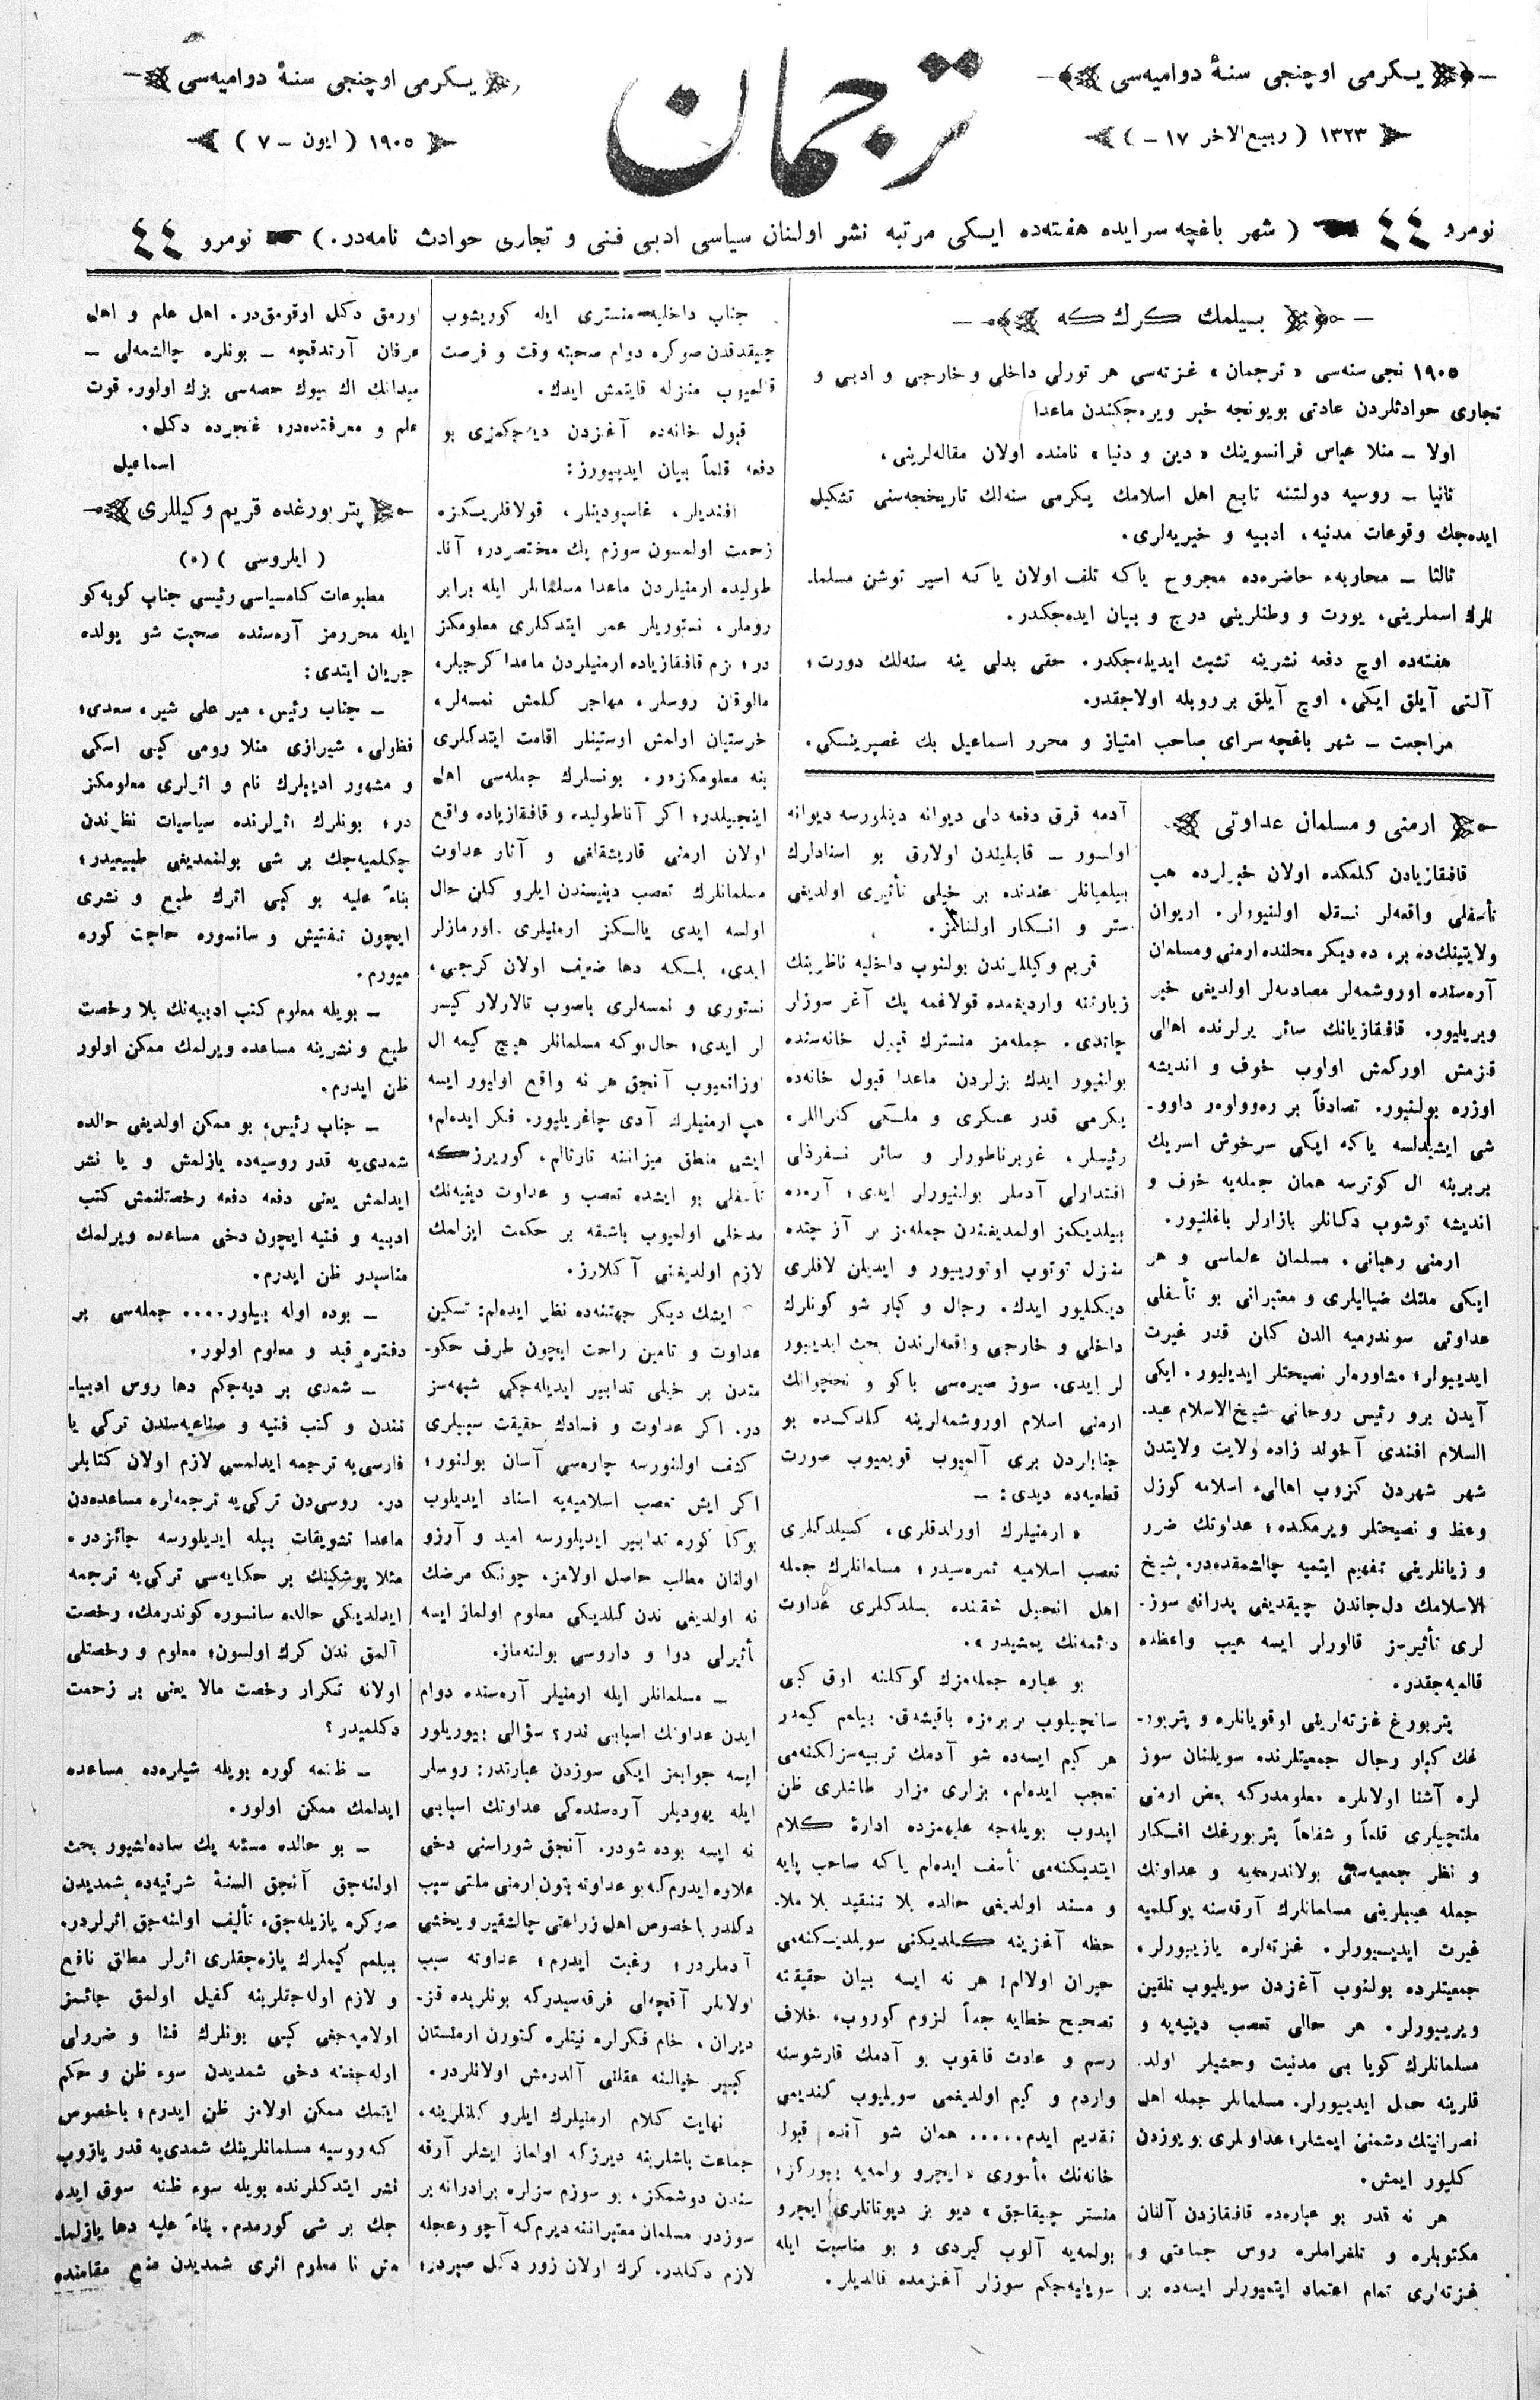 يكرمى اوچنجى سنۀ دواميه‌سى
١٣٢٣ ( ربيع الاخر ١٧ - )
ترجمان
يكرمى اوچنجى سنۀ دواميه‌سى
١٩٠٥ ( ايون - ٧ )
نومرو ٤٤ ( شهر باغچه سرايده هفته‌ده ايكى مرتبه نشر اولنان سياسى ادبى فنى و تجارى حوادث نامه‌در. ) نومرو ٤٤
بيلمك كرك كه
١٩٠٥ نجى سنه‌سى « ترجمان » غزته‌سى هر تورلى داخلى و خارجى و ادبى و
تجارى حوادثلردن عادتى بويونجه خبر ويره‌جكندن ماعدا
اولا - منلا عباس فرانسوينك « دين و دنيا » نامنده اولان مقاله‌لرينى،
ثانيا - روسيه دولتنه تابع اهل اسلامك يكرمى سنه‌لك تاريخچه‌سنى تشكيل
ايده‌جك وقوعات مدنيه، ادبيه و خيريه‌لرى.
ثالثا - محاربهء حاضره‌ده مجروح ياكه تلف اولان ياكه اسير توشن مسلما-
نلرك اسملرينى، يورت و وطنلرينى درج و بيان ايده‌جكدر.
هفته‌ده اوچ دفعه نشرينه تشبث ايديله‌جكدر. حقى بدلى ينه سنه‌لك دورت؛
آلتى آيلق ايكى، اوچ آيلق بر روبله اولاجقدر.
مراجعت - شهر باغچه سراى صاحب امتياز و محرر اسماعيل بك غصپرينسكى.
ارمنى و مسلمان عداوتى
قافقازيادن كلمكده اولان خبرلرده هپ
تأسفلى واقعه‌لر نقل اولنيورلر. اريوان
ولايتينك‌ده بر، ده ديكر محلنده ارمنى و مسلمان
آره‌سنده اوروشمه‌لر مصادمه‌لر اولديغى خبر
ويريليور. قافقازيانك سائر يرلرنده اهالى
قزمش اوركمش اولوب خوف و انديشه
اوزره بولنيور. تصادفاً بر ره‌وولوه‌ر داوو-
شى ايشيدلسه ياكه ايكى سرخوش اسريك
بربرينه ال كوترسه همان جمله‌يه خوف و
انديشه توشوب دكانلر بازارلر باغلنيور.
ارمنى رهبانى، مسلمان علماسى و هر
ايكى ملتك ضياليلرى و معتبرانى بو تأسفلى
عداوتى سوندرميه الدن كلن قدر غيرت
ايدييولر؛ مشاوره‌لر نصيحتلر ايديليور. ايكى
آيدن برو رئيس روحانى شيخ الاسلام عبد-
السلام افندى آخوند زاده ولايت ولايتدن
شهر شهردن كزوب اهالىء اسلامه كوزل
وعظ و نصيحتلر ويرمكده؛ عداوتك ضرر
و زيانلرينى تفهيم ايتميه چالشمقده‌در. شيخ
الاسلامك دل‌جاندن چيقديغى پدرانه سوز-
لرى تأثيرسز قالورلر ايسه عيب واعظده
قالميه‌جقدر.
پتربورغ غزته‌لرينى اوقويانلره و پتربور-
غك كبار رجال جمعيتلرنده سويلنان سوز
لره آشنا اولانلره معلومدركه بعض ارمنى
ملتچيلرى قلماً و شفاهاً پتربورغك افكار
و نظر جمعيه‌سنى بولاندرميه و عداوتك
جمله عيبلرينى مسلمانلرك آرقه‌سنه يوكلميه
غيرت ايدييورلر. غزته‌لره يازييورلر،
جمعيتلرده بولنوب آغزدن سويليوب تلقين
ويرييورلر. هر حالى تعصب دينيه‌يه و
مسلمانلرك كويا بى مدنيت وحشيلر اولد-
قلرينه حمل ايدييورلر. مسلمانلر جمله اهل
نصرانيتك دشمنى ايمشلر؛ عداوتلرى بو يوزدن
كليور ايمش.
هر نه قدر بو عباره‌ده قافقازدن آلنان
مكتوبلره و تلغراملره روس جماعتى و
غزته‌لرى تمام اعتماد ايتميورلر ايسه‌ده بر
آدمه قرق دفعه دلى ديوانه دينلورسه ديوانه
اولور - قابليتدن اولارق بو اسنادلرك
بيلميانلر عندنده بر خيلى تأثيرى اولديغى
ستر و انكار اولنماز.
قريم وكيللرندن بولنوب داخليه ناظرينك
زيارتنه وارديغمده قولاغمه پك آغر سوزلر
چاتدى. جمله‌مز منسترك قبول خانه‌سنده
بولنيور ايدك بزلردن ماعدا قبول خانه‌ده
يكرمى قدر عسكرى و ملكى كنراللر،
رئيسلر، غوبرناطورلر و سائر نفوذلى
اقتدارلى آدملر بولنيورلر ايدى؛ آره‌ده
بيلديكمز اولمديغندن جمله‌مز بر آز چتده
منزل توتوب اوتورييور و ايديلن لافلرى
ديكليور ايدك. رجال و كبار شو كونلرك
داخلى و خارجى واقعه‌لرندن بحث ايدييور
لر ايدى. سوز صيره‌سى باكو و نخچوانك
ارمنى اسلام اوروشمه‌لرينه كلدكده بو
جنابلردن برى آلميوب قويميوب صورت
قطعيه‌ده ديدى: -
« ارمنيلرك اورلدقلرى، كسيلدكلرى
تعصب اسلاميه ثمره‌سيدر؛ مسلمانلرك جمله
اهل انجيل حقنده بسلدكلرى عداوت
دائمه‌نك يمشيدر ».
بو عباره جمله‌مزك كوكلنه اوق كبى
سانچيلوب بربرمزه باقيشدق. بيلمم كيمدر
هر كيم ايسه‌ده شو آدمك تربيه‌سزلكنه‌مى
تعجب ايده‌لم، بزلرى مزار طاشلرى ظن
ايدوب بويله‌جه عليهمزده ادارۀ كلام
ايتديكنه‌مى تأسف ايده‌لم ياكه صاحب پايه
و مسند اولديغى حالده بلا تنقيد بلا ملا-
حظه آغزينه كلديكنى سويلديكنه‌مى
حيران اولالم! هر نه ايسه بيان حقيقته
تصحيح خطايه جداً لزوم كوروب، خلاف
رسم و عادت قالقوب بو آدمك قارشوسنه
واردم و كيم اولديغمى سويليوب كنديمى
تقديم ايدم..... همان شو آنده قبول
خانه‌نك مأمورى « ايچرو ولمه‌يه بيورگز؛
منستر چيقاجق » ديو بز دپوتاتلرى ايچرو
بولمه‌يه آلوب كيردى و بو مناسبت ايله
سويليه‌جكم سوزلر آغزمده قالديلر.
جناب داخليه منسترى ايله كوريشوب
چيقدقدن صوكره دوام صحبته وقت و فرصت
قالميوب منزله قايتمش ايدك.
قبول خانه‌ده آغزدن ديه‌جكمزى بو
دفعه قلماً بيان ايدييورز:
افنديلر، غاسپودينلر، قولاقلريكزه
زحمت اولمسون سوزم پك مختصردر؛ آنا-
طوليده ارمنيلردن ماعدا مسلمانلر ايله برابر
روملر، نستوريلر عمر ايتدكلرى معلومكز
در؛ بزم قافقازياده ارمنيلردن ماعدا كرجيلر،
مالوقان روسلر، مهاجر كلمش نمسه‌لر،
خرستيان اولمش اوستينلر اقامت ايتدكلرى
ينه معلومكزدر. بونلرك جمله‌سى اهل
اينجيلدر؛ اكر آناطوليده و قافقازياده واقع
اولان ارمنى قاريشقلغى و آثار عداوت
مسلمانلرك تعصب دينيسندن ايلرو كلن حال
اولسه ايدى يالكز ارمنيلرى اورمازلر
ايدى، بلكه دها ضعيف اولان كرجى،
نستورى و نمسه‌لرى باصوب تالارلار كيسر
لر ايدى؛ حال‌بوكه مسلمانلر هيچ كيمه ال
اوزانميوب آنجق هر نه واقع اوليور ايسه
هپ ارمنيلرك آدى چاغريليور. فكر ايده‌لم؛
ايشى منطق ميزاننه تارتالم، كوريرزكه
تأسفلى بو ايشده تعصب و عداوت دينيه‌نك
مدخلى اولميوب باشقه بر حكمت ايزلمك
لازم اولديغنى آكلارز.
ايشك ديكر جهتنه‌ده نظر ايده‌لم: تسكين
عداوت و تامين راحت ايچون طرف حكو-
متدن بر خيلى تدابير ايديله‌جكى شبهه‌سز
در. اكر عداوت و فسادك حقيقت سببلرى
كشف اولنورسه چاره‌سى آسان بولنور؛
اكر ايش تعصب اسلاميه‌يه اسناد ايديلوب
بوكا كوره تدابير ايديلورسه اميد و آرزو
اولنان مطلب حاصل اولامز، چونكه مرضك
نه اولديغى ندن كلديكى معلوم اولماز ايسه
تأثيرلى دوا و داروسى بولنه‌ماز.
- مسلمانلر ايله ارمنيلر آره‌سنده دوام
ايدن عداوتك اسبابى ندر؟ سؤالى بيوريلور
ايسه جوابمز ايكى سوزدن عبارتدر: روسلر
ايله يهوديلر آره‌سنده‌كى عداوتك اسبابى
نه ايسه بوده شودر. آنجق شوراسنى دخى
علاوه ايدرم كه بو عداوته بتون ارمنى ملتى سبب
دكلدر باخصوص اهل زراعتى چالشقير و يخشى
آدملردر؛ رغبت ايدرم؛ عداوته سبب
اولانلر آقچه‌لى فرقه‌سيدركه بونلريده قز-
ديران، خام فكرلره نيتلره كتورن ارمنستان
كبير خيالنه عقلنى آلدرمش اولانلردر.
نهايت كلام ارمنيلرك ايلرو كلنلرينه،
جماعت باشلرينه ديرزكه اولماز ايشلر آرقه
سندن دوشمكز، بو سوزم سزلره برادرانه بر
سوزدر. مسلمان معتبراننه ديرم كه آچو و عجله
لازم دكلدر. كرك اولان زور دكل صبردر؛
اورمق دكل اوقومق‌در. اهل علم و اهل
عرفان آرتدقچه - بونلره چالشمه‌لى -
ميدانك اك بيوك حصه‌سى بزك اولور. قوت
علم و معرفتده‌در؛ خنجرده دكل.
اسماعيل
پتربورغده قريم وكيللرى
( ايلروسى ) (٥)
مطبوعات كاميسياسى رئيسى جناب كوبه‌كو
ايله محررمز آره‌سنده صحبت شو يولده
جريان ايتدى:
- جناب رئيس، مير على شير، سعدى؛
فظولى، شيرازى منلا رومى كبى اسكى
و مشهور اديبلرك نام و اثرلرى معلومكز
در؛ بونلرك اثرلرنده سياسيات نظرندن
چكلميه‌جك بر شى بولنمديغى طبيعيدر؛
بناءً عليه بو كبى اثرك طبع و نشرى
ايچون تفتيش و سانسوره حاجت كوره
ميورم.
- بويله معلوم كتب ادبيه‌نك بلا رخصت
طبع و نشرينه مساعده ويرلمك ممكن اولور
ظن ايدرم.
- جناب رئيس، بو ممكن اولديغى حالده
شمدى‌يه قدر روسيه‌ده يازلمش و يا نشر
ايدلمش يعنى دفعه دفعه رخصتلنمش كتب
ادبيه و فنيه ايچون دخى مساعده ويرلمك
مناسبدر ظن ايدرم.
- بوده اوله بيلور.... جمله‌سى بر
دفتره قيد و معلوم اولور.
- شمدى بر ديه‌جكم دها روس ادبيا-
تندن و كتب فنيه و صناعيه‌سندن تركى يا
فارسى‌يه ترجمه ايدلمسى لازم اولان كتابلر
در. روسى‌دن تركى‌يه ترجمه‌لره مساعده‌دن
ماعدا تشويقات بيله ايديلورسه جائزدر.
مثلا پوشكينك بر حكايه‌سى تركى‌يه ترجمه
ايدلديكى حالده سانسوره كوندرمك، رخصت
آلمق ندن كرك اولسون؛ معلوم و رخصتلى
اولانه تكرار رخصت مالا يعنى بر زحمت
دكلميدر؟
- ظنمه كوره بويله شيلره‌ده مساعده
ايدلمك ممكن اولور.
- بو حالده مسئله پك ساده‌لشيور بحث
اولنه‌جق آنجق السنۀ شرقيه‌ده شمديدن
صوكره يازيله‌جق، تأليف اولنه‌جق اثرلردر.
بيلمم كيملرك يازه‌جقلرى اثرلر مطلق نافع
و لازم اوله‌جقلرينه كفيل اولمق جائز
اولاميه‌جغى كبى بونلرك فنا و ضررلى
اوله‌جغنه دخى شمديدن سوء ظن و حكم
ايتمك ممكن اولامز ظن ايدرم؛ باخصوص
كه روسيه مسلمانلرينك شمدى‌يه قدر يازوب
نشر ايتدكلرنده بويله سوء ظنه سوق ايده
جك بر شى كورمدم. بناءً عليه دها يازلما-
مش نا معلوم اثرى شمديدن منع مقامنده